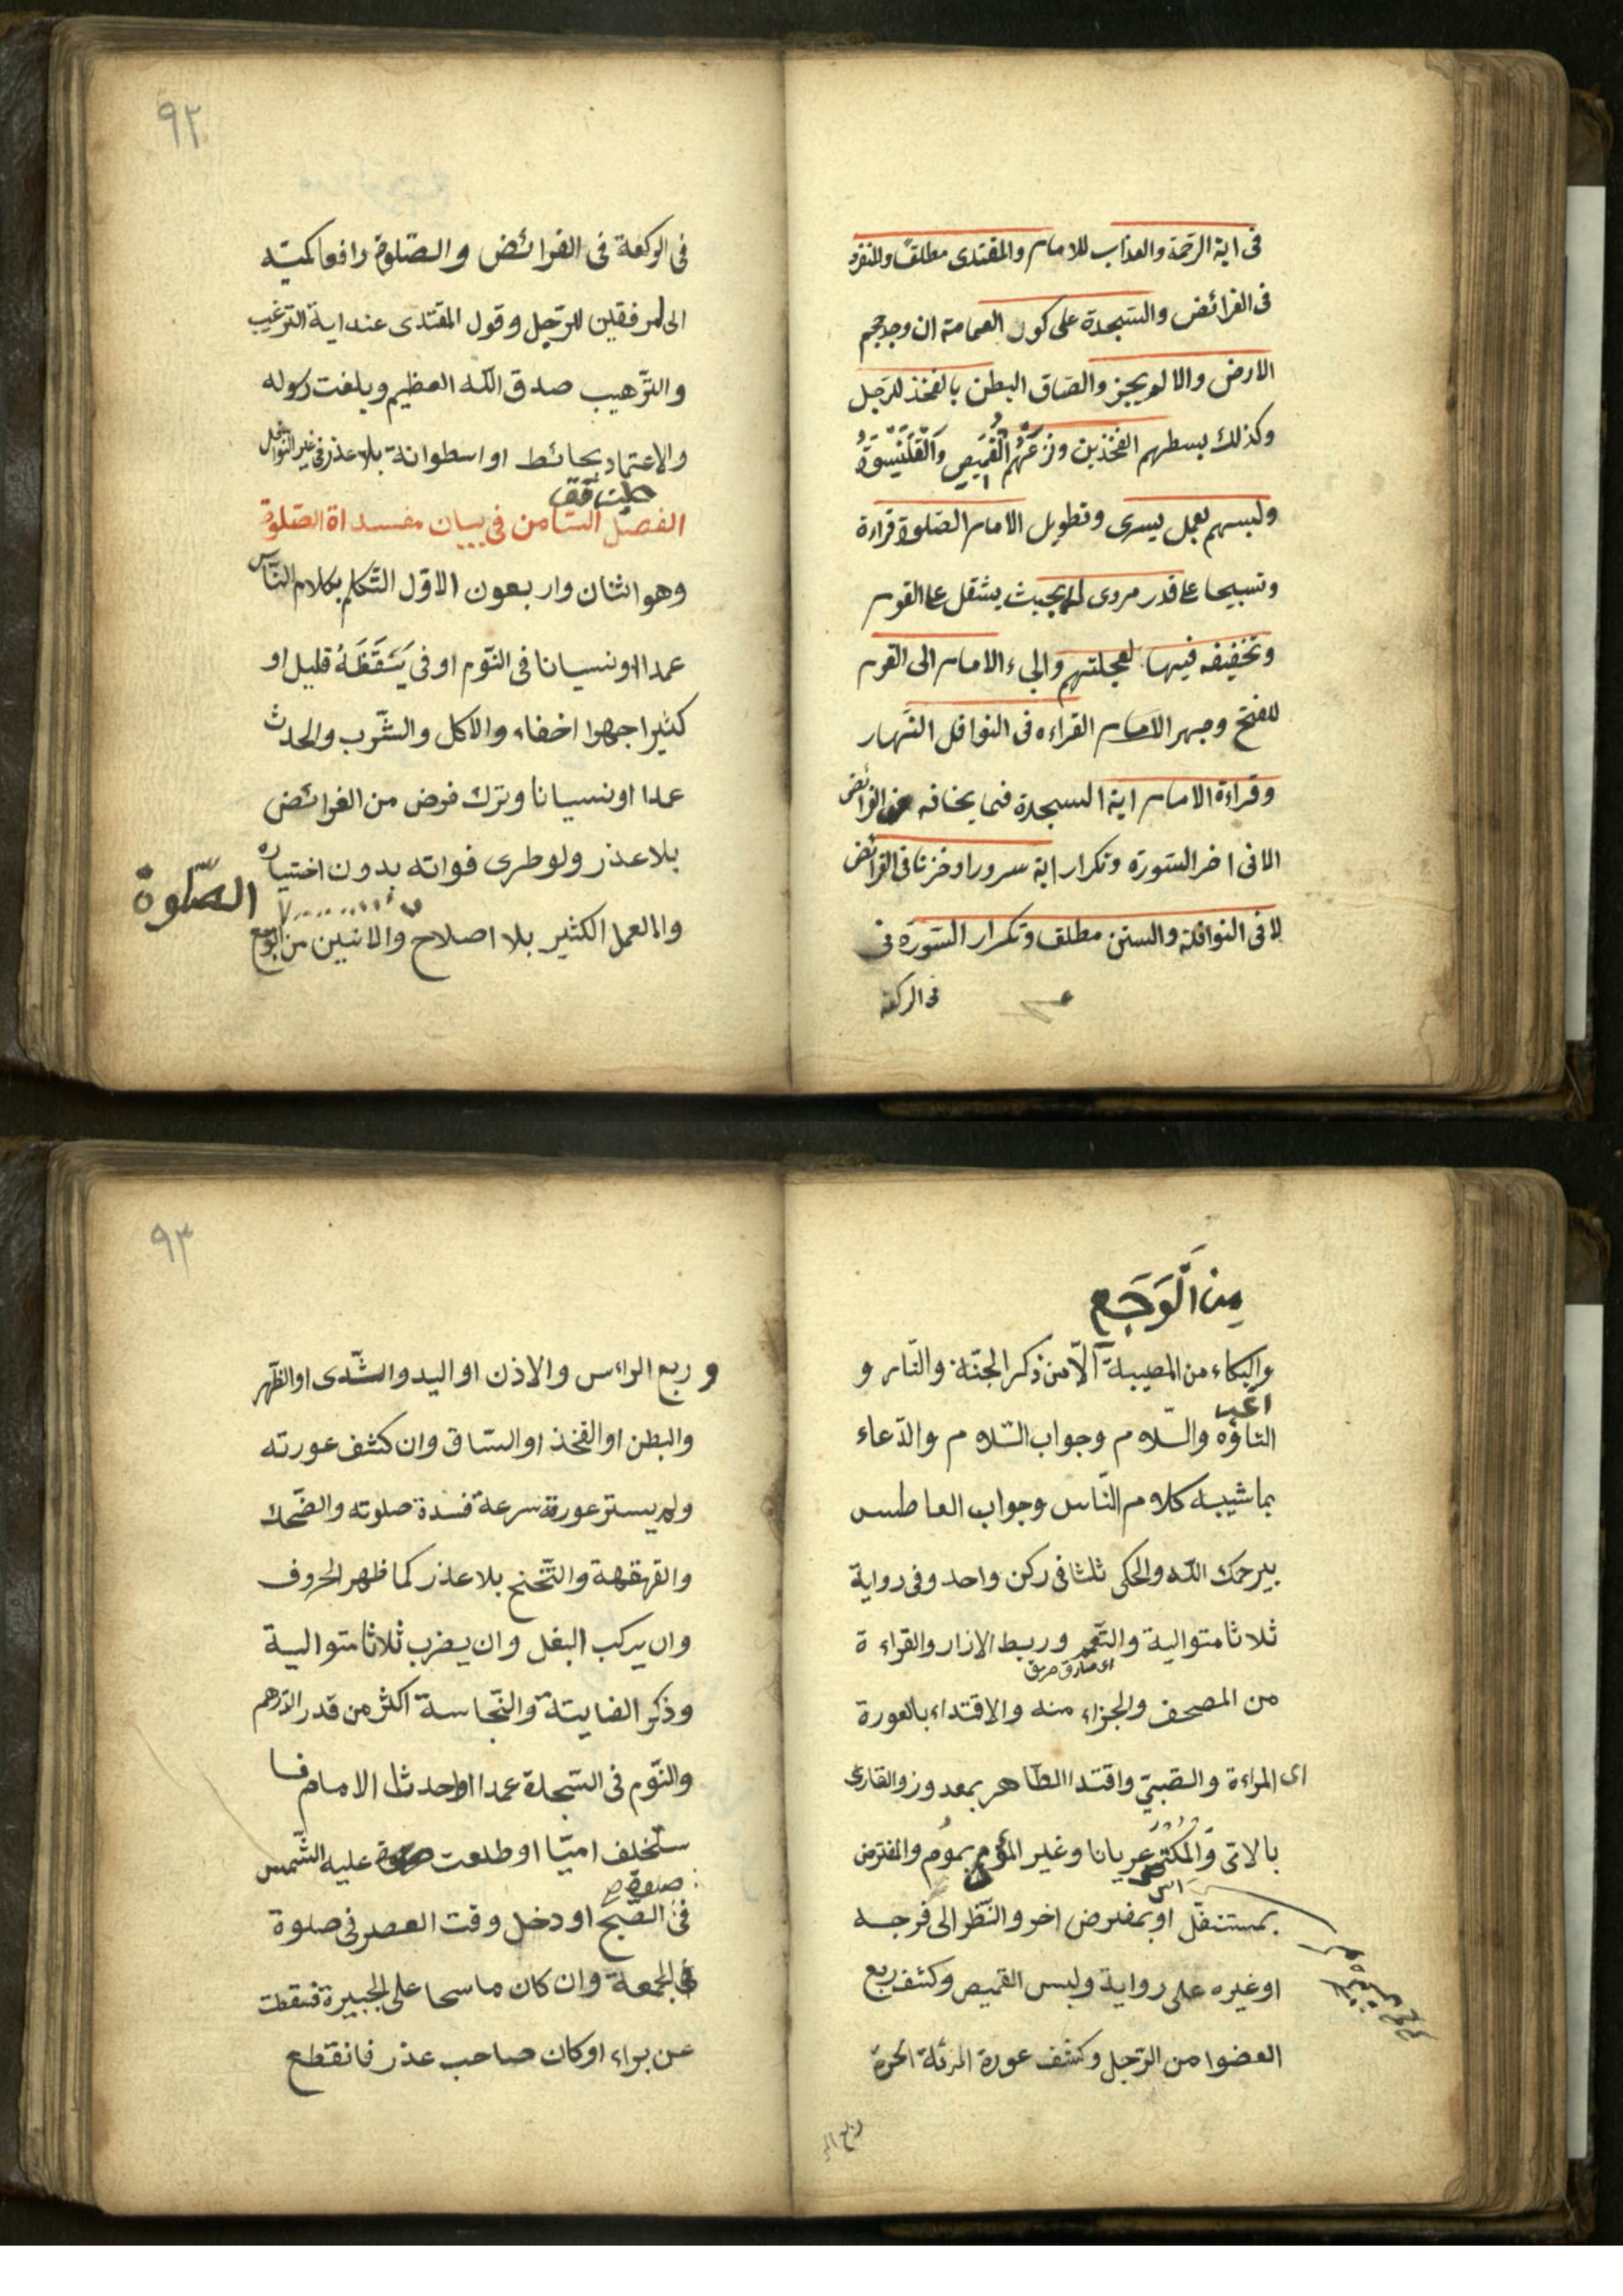 فى اية الرحمة والعذاب للامام والمقتدى مطلقًا والمنفرد
فى الفرائض والسّجدة على كور العمامة ان وجد حجم
الارض والا لم يجز والصاق البطن بالفخذ للرّجل
وكذلك بسطهم الفخذين ونزعهم القميص والقلنسوة
ولبسهم بعمل يسرى وتطويل الامام الصّلوة قراءة
وتسبيحا على قدر مروى بحيث يثقل على القوم
وتخفيفه فيها لعجلتهم والجاء الامام الى القوم
للفتح وجهر الامام القراءه فى النوافل النّهار
وقراءة الامام اية السجدة فيما يخافه الفرائض
الا فى اخر السّورة وتكرار اية سرورا وحزنا فى الفرائض
لا فى النوافلة والسنن مطلقا وتكرار السّورة فى
فى الركعة
٩٢
فى الركعة فى الفرائض والصّلوة رافعا كميّه
الى المرفقين للرّجل وقول المقتدى عند اية الترغيب
والتّرهيب صدق الله العظيم وبلغت رسوله
والاعتماد بحائط او اسطوانة بلا عذر فى غير النوافل
الفصل الثامن فى بيان مفسداة الصّلوة
وهو اثنان واربعون الاوّل التّكلم بكلام النّاس
عمدا اونسيانا فى النّوم او فى يَتَقَظَهُ قليل او
كثيرا جهرا اخفاء والاكل والشّرب والحدث
عمدا اونسيانا وترك فرض من الفرائض
بلا عذر ولو طرى فواته بدون اختياره
الصّلوة
والعمل الكثير بلا اصلاح والانين من الوجع
مِنَ الْوَجَعِ
والبكاء من المصيبة الّا من ذكر الجنّة والنّار و
التاوّه والسّلام وجواب السّلام والدّعاء
بما شيبه كلام النّاس وجواب العاطس
بيرحمك اللّه والحكى ثلثا فى ركن واحد وفى رواية
ثلاثا متوالية والتّعمم وربط الازار والقراءة
من المصحف والجزاء منه والاقتداء بالعورة
اى المراءة والصّبيّ واقتدا الطّاهر بمعدور والقارئ
بالامّى والمكتسى عريانا وغير المؤم بموم والمفترض
بمستنفّل او بمفترض اخر والنّظر الى فرجه
او غيره على رواية ولبس القميص وكشف ربع
العضوا من الرّجل وكشف عورة المرئة الحرّة
ربع الر
٩٣
و ربع الراءس والاذن او اليد والثّدى او الظّهر
والبطن او الفخذ او السّاق وان كشف عورته
ولم يستر عورة سرعة فسدة صلوته والضّحك
والقرقهة والتّخنح بلا عذر كما ظهر الحروف
وان يركب البغل وان يضرب ثلاثا متوالية
وذكر الفايتة والنّجاسة اكثر من قدر الدّرهم
والنّوم فى السّجدة عمدا او احدث الامام فا
ستخلف اميّا او طلعت عليه الشّمس
فى الصّبح او دخل وقت العصر فى صلوة
الجمعة وان كان ماسحا على الجبيرة فسقطت
عن براء او كان صاحب عذر فانقطع